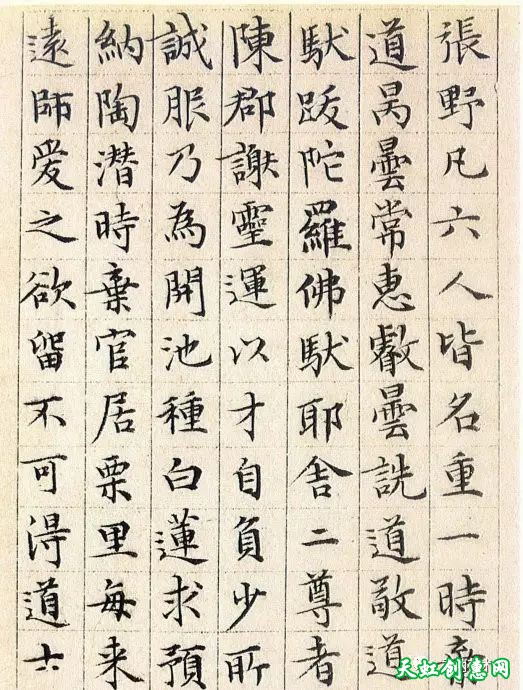 張野凡六人皆名重一時
道昺曇常惠叡曇詵道敬道
馱跋陀羅佛馱耶舍二尊者
陳郡謝靈運以才自負少所
誠服乃為開池種白蓮求預
納陶潜時棄官居栗里每来
遠師愛之欲留不可得道士
天虹创意网